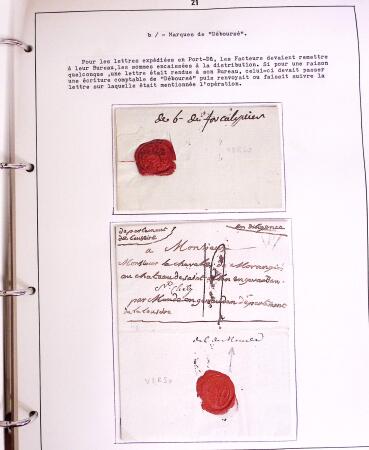 21
b /- Marques de "Déboursé".
Pour les lettres expédiées en Port-Dû, les Facteurs devaient remettre
à leur Bureau,les sommes encaissées à la distribution. Si pour une raison
quelconque ,une lettre était rendue à son Bureau, celui-ci devait passer
une écriture comptable de "Déboursé" puis renvoyait ou faisait suivre la
lettre sur laquelle était mentionnée l'opération.
VERSO
departement
en diligence
a Monsieur
Monsieur le chevalier de Morangiés
au chateau de saint
St Chely
par Mende en gevaudan departement
de la Lozère
VERSO